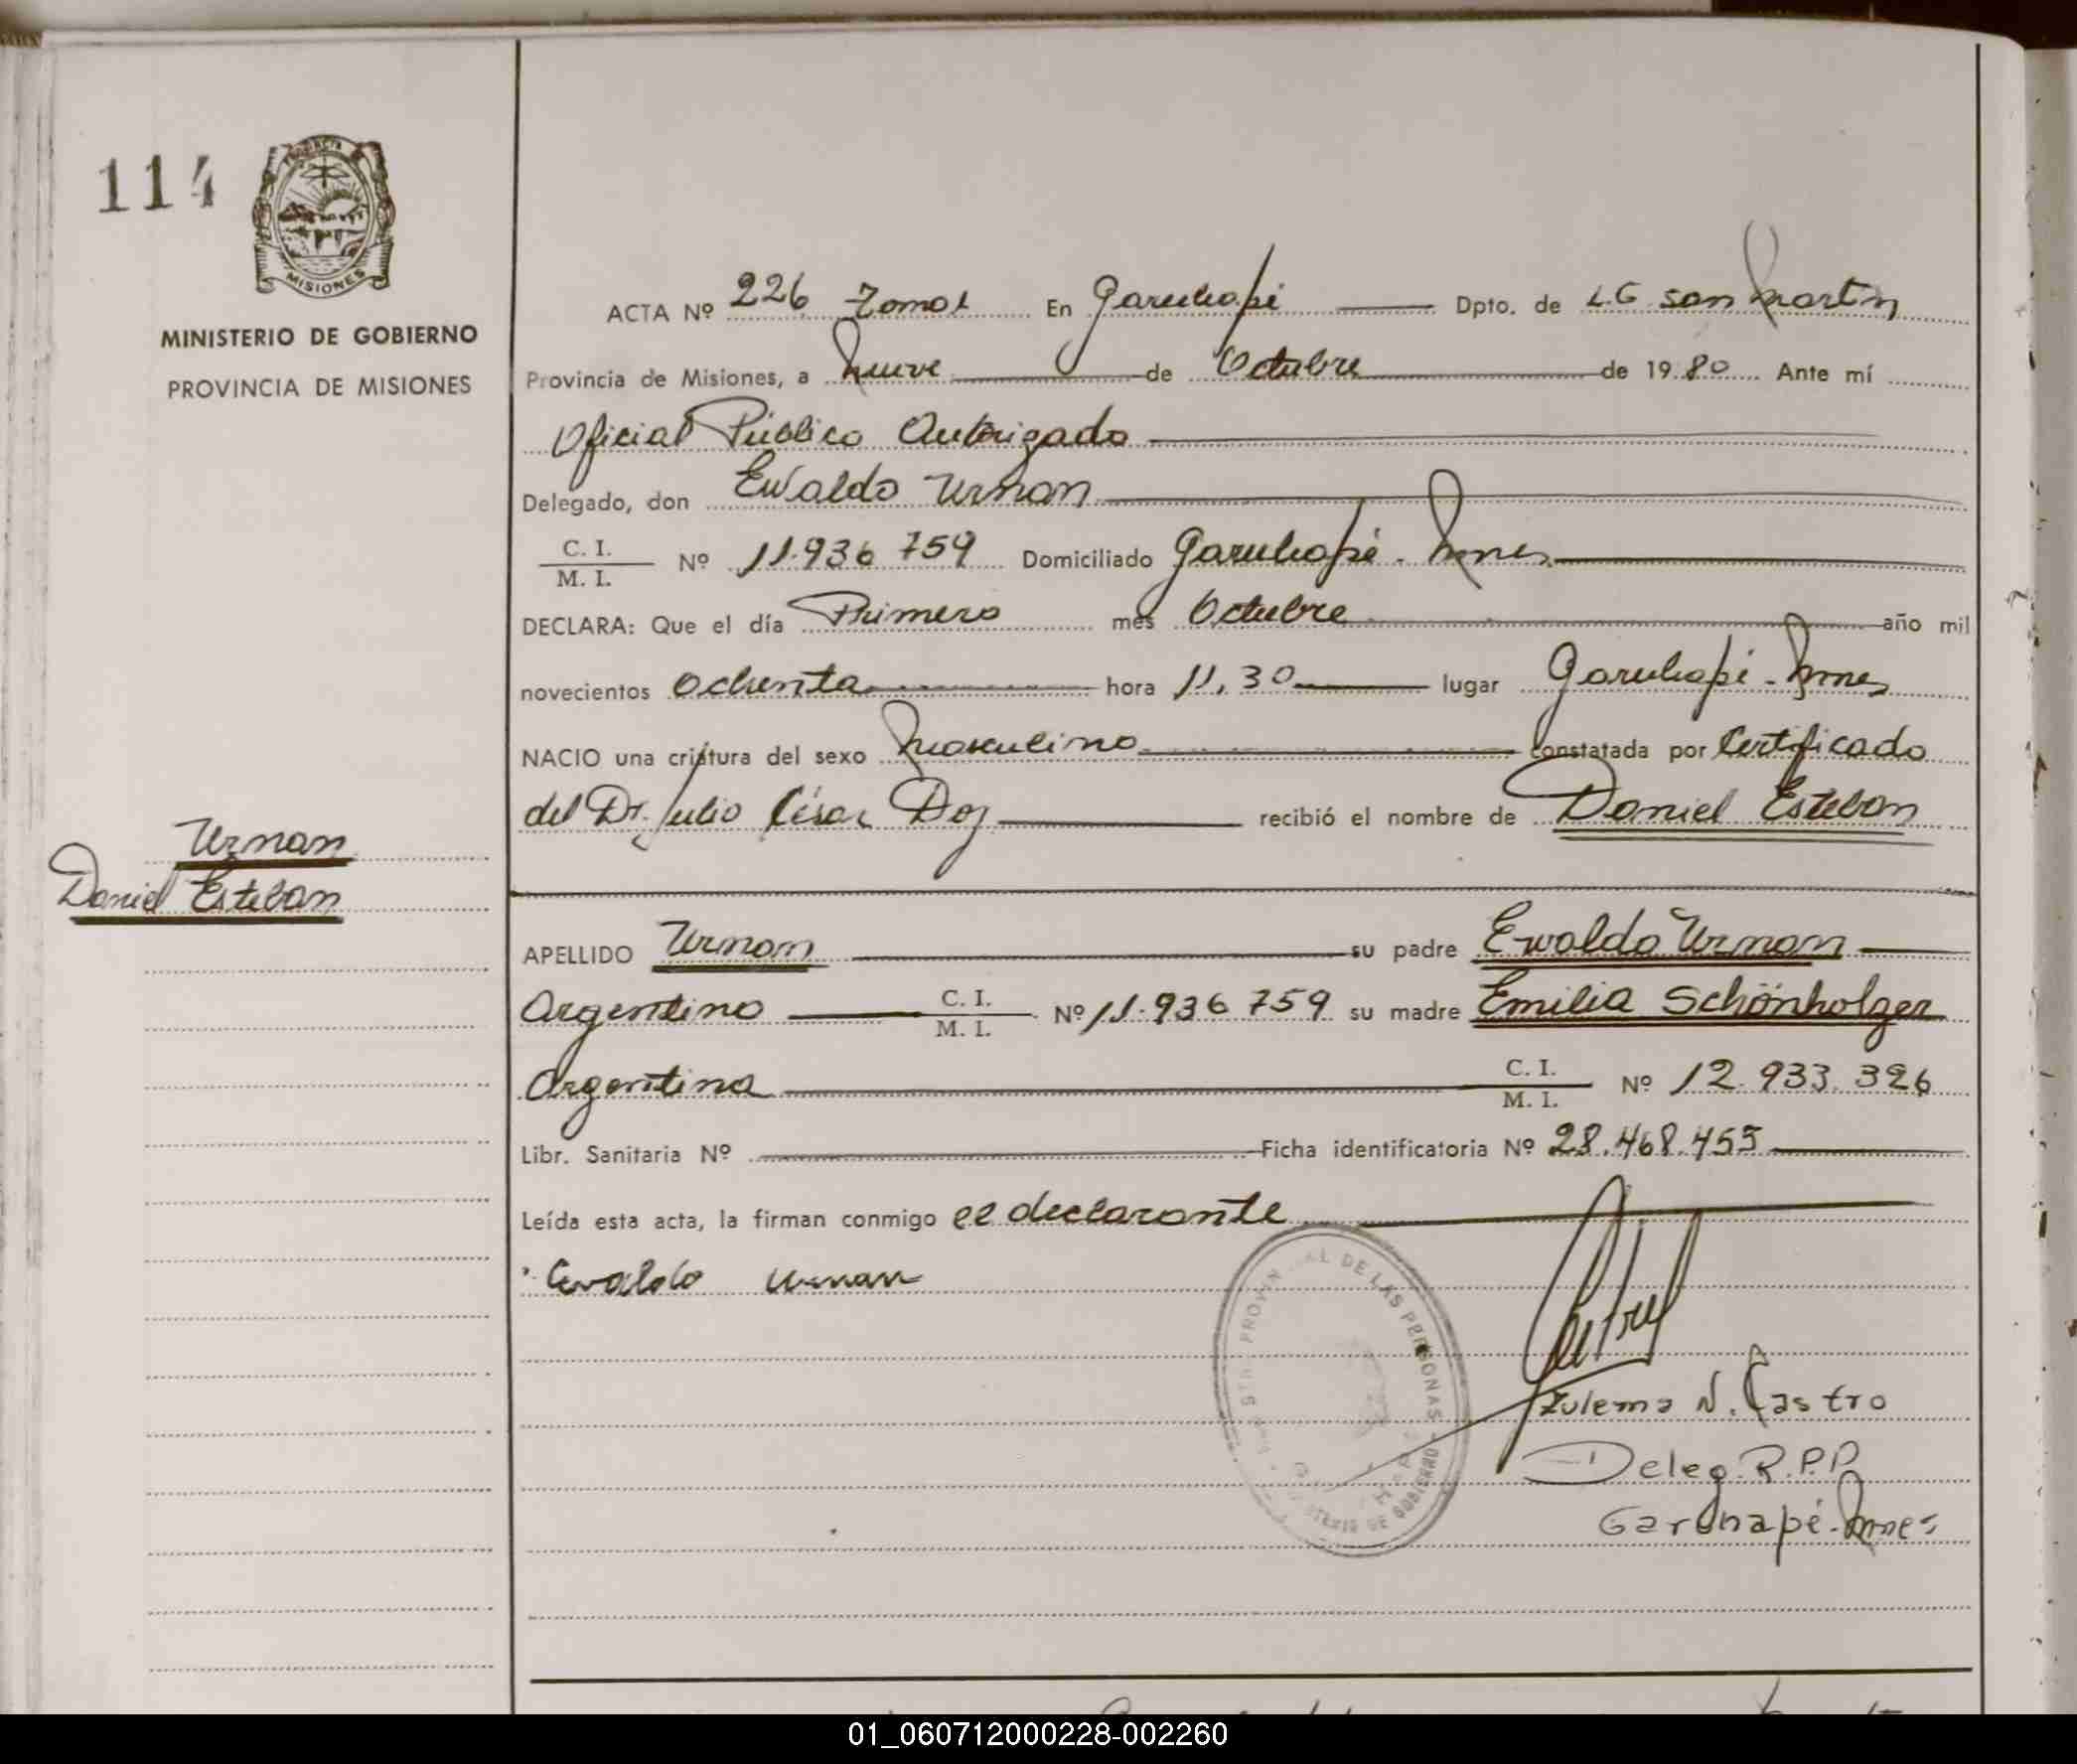 114
PROVINCIA
MISIONES
MINISTERIO DE GOBIERNO
PROVINCIA DE MISIONES
ACTA Nº 226 Tomo I En Garuhapé Dpto. de L.G San Martín
Provincia de Misiones, a Nueve de Octubre de 1980 Ante mí
Oficial Público Autorizado
Delegado, don Ewaldo Urnan
C. I.
M. I. Nº 11.936 759 Domiciliado Garuhapé - Mnes
DECLARA: Que el día Primero mes Octubre año mil
novecientos ochenta hora 11,30 lugar Garuhapé - Mnes
NACIO una criatura del sexo Masculino constatada por Certificado
del Dr. Julio César Doz recibió el nombre de Daniel Esteban
Urnan
Daniel Esteban
APELLIDO Urnan su padre Ewaldo Urnan
Argentino C. I.
M. I. Nº 11.936 759 su madre Emilia Schönholzer
Argentina C. I.
M. I. Nº 12.933.326
Libr. Sanitaria Nº Ficha identificatoria Nº 28.468.455
Leída esta acta, la firman conmigo el declarante
Ewaldo Urnan
DE LAS PERSONAS
DE GOBIERNO
Zulema N. Castro
Deleg. R.P.P
Garuhapé - Mnes
01_060712000228-002260